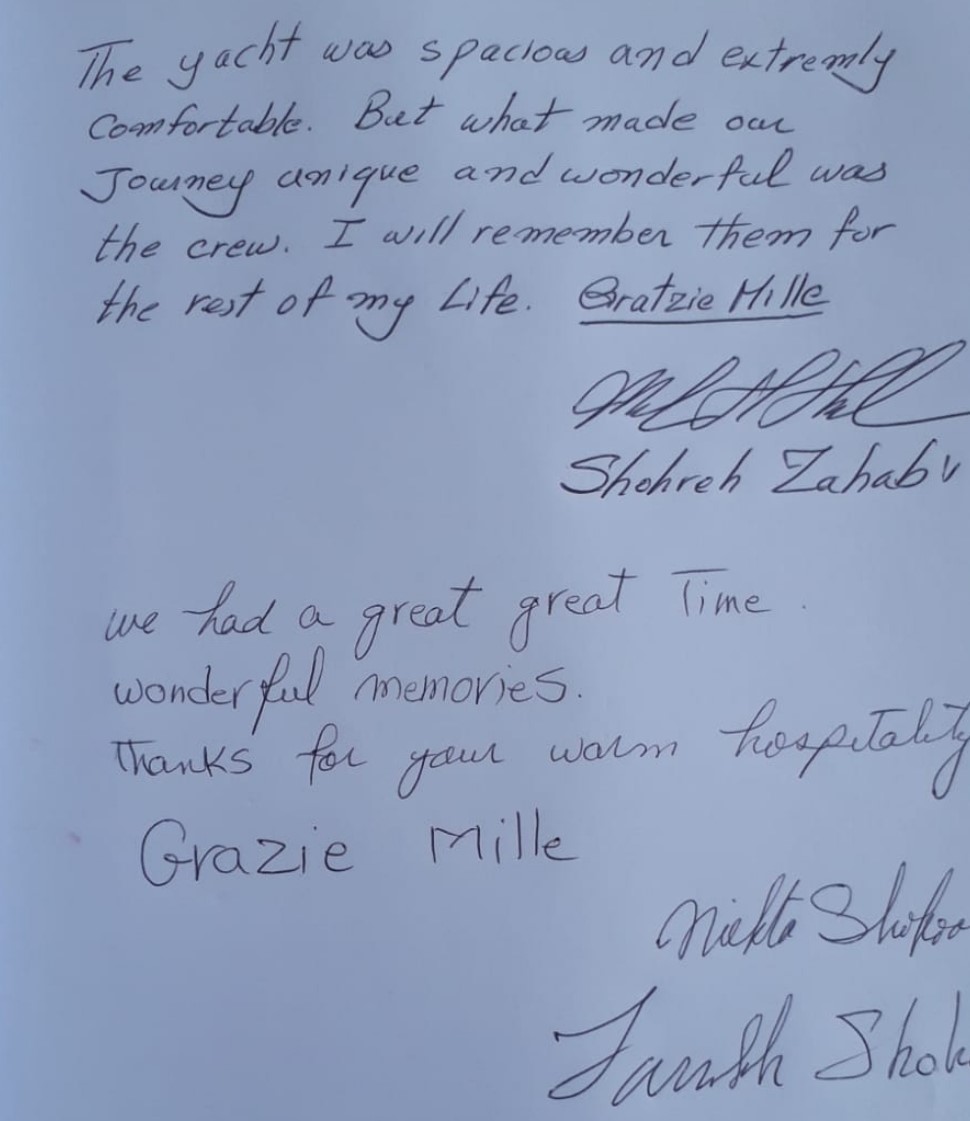 The yacht was spacious and extremly
Comfortable. But what made our
Journey unique and wonderful was
the crew. I will remember them for
the rest of my Life. Gratzie Mille
Shohreh Zahabi
we had a great great Time.
wonderful memories.
Thanks for your warm hospitality
Grazie Mille